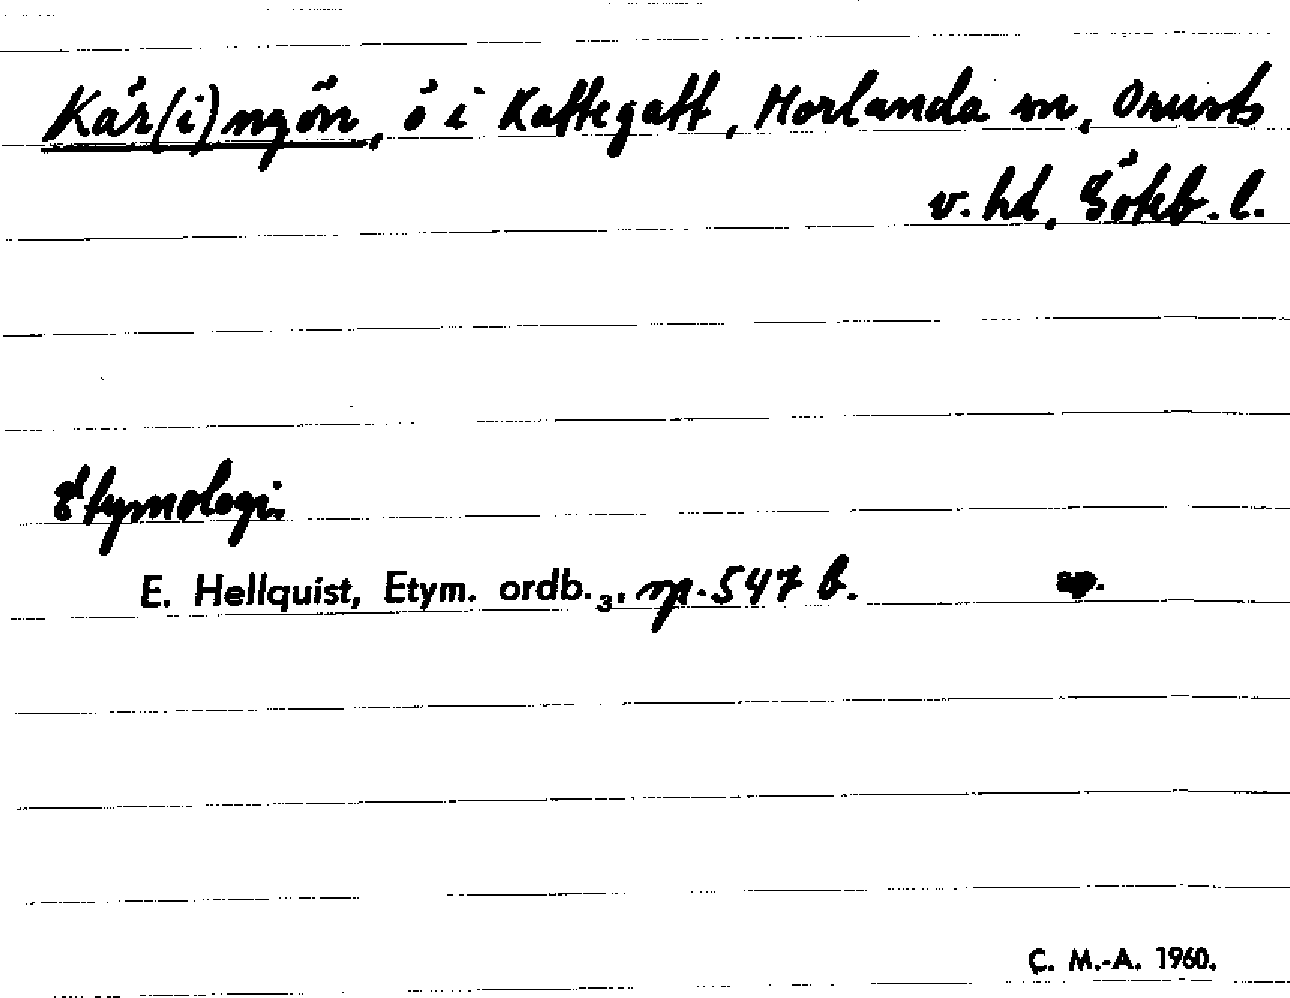 Kär(i)ngön, ö i Kattegatt, Morlanda sn, Orusts
v. hd, Göteb. l.
Etymologi.
E. Hellquist, Etym. ordb.₃, sp. 547 b.
C. M.-A. 1960.